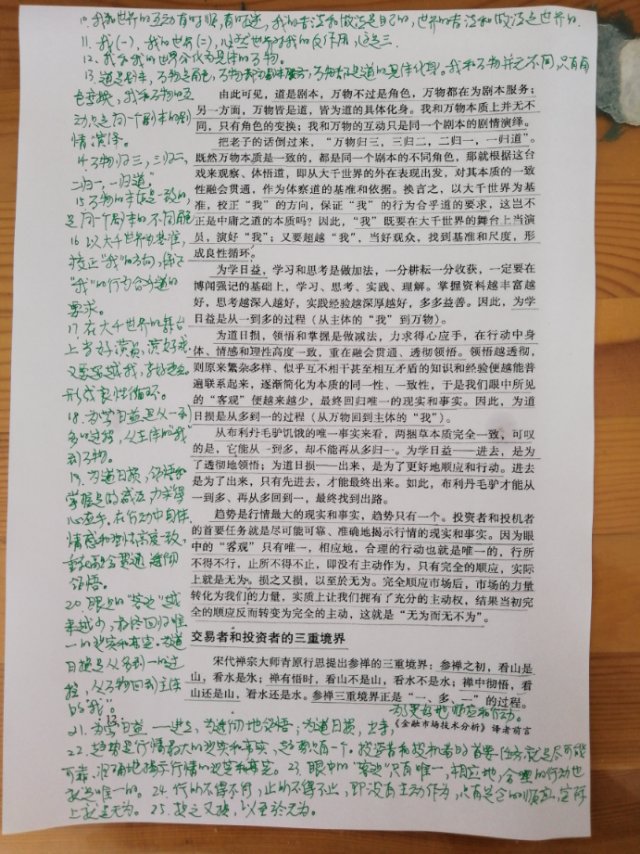 10. 我和世界的互动有时顺，有时逆，我的看法和做法是自己的，世界的看法和做法是世界的.
11. 我(一)，我的世界(二)，以及世界对我的反作用，这是三.
12. 我和我的世界分化为具体的万物。
13. 道是剧本，万物是角色，万物都为剧本服务，万物都是道的具体化身。我和万物本质上并无不同，只有角
色变换，我和万物的互
动只是同一个剧本的剧
情演绎。
14. 万物归三，三归二，
二归一，一归道。
15. 万物的本质是一致的，
是同一个剧本的不同角色
16. 以大千世界为基准，
校正“我”的方向，保证
“我”的行为合乎道的
要求。
17. 在大千世界的舞台
上当好演员，演好我
又要超越我，当好观众。
形成良性循环。
18. 为学日益是从一到
多的过程，从主体的“我”
到万物。
19. 为道日损，领悟和
掌握是做减法，力求得
心应手，在行动中身体
情感和理性高度一致，
重在融会贯通，透彻
领悟。
20. 眼里的“客观”越
来越少，最终回归唯
一的现实和事实。为道
日损是从多到一的过
程，从万物回到主体
的“我”。
由此可见，道是剧本，万物不过是角色，万物都在为剧本服务；
另一方面，万物皆是道，皆为道的具体化身。我和万物本质上并无不
同，只有角色的变换；我和万物的互动只是同一个剧本的剧情演绎。
把老子的话倒过来，“万物归三，三归二，二归一，一归道”。
既然万物本质是一致的，都是同一个剧本的不同角色，那就根据这台
戏来观察、体悟道，即从大千世界的外在表现出发，对其本质的一致
性融会贯通，作为体察道的基准和依据。换言之，以大千世界为基
准，校正“我”的方向，保证“我”的行为合乎道的要求，这岂不
正是中庸之道的本质吗？因此，“我”既要在大千世界的舞台上当演
员，演好“我”；又要超越“我”，当好观众，找到基准和尺度，形
成良性循环。
为学日益，学习和思考是做加法，一分耕耘一分收获，一定要在
博闻强记的基础上，学习、思考、实践、理解。掌握资料越丰富越
好，思考越深入越好，实践经验越深厚越好，多多益善。因此，为学
日益是从一到多的过程（从主体的“我”到万物）。
为道日损，领悟和掌握是做减法，力求得心应手，在行动中身
体、情感和理性高度一致，重在融会贯通、透彻领悟。领悟越透彻，
则原来繁杂多样、似乎互不相干甚至相互矛盾的知识和经验便越能普
遍联系起来，逐渐简化为本质的同一性、一致性，于是我们眼中所见
的“客观”便越来越少，最终回归唯一的现实和事实。因此，为道
日损是从多到一的过程（从万物回到主体的“我”）。
从布利丹毛驴饥饿的唯一事实来看，两捆草本质完全一致，可叹
的是，它能从一到多，却不能再从多归一。为学日益——进去，是为
了透彻地领悟；为道日损——出来，是为了更好地顺应和行动。进去
是为了出来，只有先进去，才能最终出来。如此，布利丹毛驴才能从
一到多、再从多回到一，最终找到出路。
趋势是行情最大的现实和事实，趋势只有一个。投资者和投机者
的首要任务就是尽可能可靠、准确地揭示行情的现实和事实。因为眼
中的“客观”只有唯一，相应地，合理的行动也就是唯一的，行所
不得不行，止所不得不止，即没有主动作为，只有完全的顺应，实际
上就是无为，损之又损，以至於无为。完全顺应市场后，市场的力量
转化为我们的力量，实质上让我们拥有了充分的主动权，结果当初完
全的顺应反而转变为完全的主动，这就是“无为而无不为”。
交易者和投资者的三重境界
宋代禅宗大师青原行思提出参禅的三重境界：参禅之初，看山是
山，看水是水；禅有悟时，看山不是山，看水不是水；禅中彻悟，看
山还是山，看水还是水。参禅三重境界正是“一、多、一”的过程。
为更好地顺应和行动。
《金融市场技术分析》译者前言
21. 为学日益——进去，为透彻地领悟；为道日损，出来，
22. 趋势是行情最大的现实和事实，趋势只有一个。投资者和投机者的首要任务就是尽可能
可靠、准确地揭示行情的现实和事实。23. 眼中的“客观”只有唯一，相应地，合理的行动也
就是唯一的。24. 行所不得不行，止所不得不止，即没有主动作为，只有完全的顺应，实际
上就是无为。25. 损之又损，以至於无为。